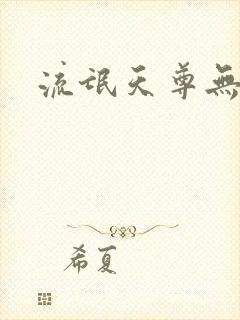 流氓天尊無
希夏